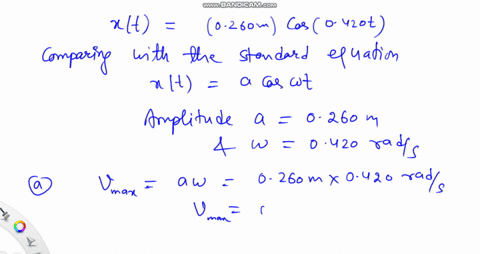 www.BANDICAM.com
x(t) = (0.260m) Cos(0.420t)
Comparing with the standard equation
x(t) = a cos ωt
Amplitude a = 0.260 m
& ω = 0.420 rad/s
(a) Vmax = aω = 0.260 m × 0.420 rad/s
Vmax = (